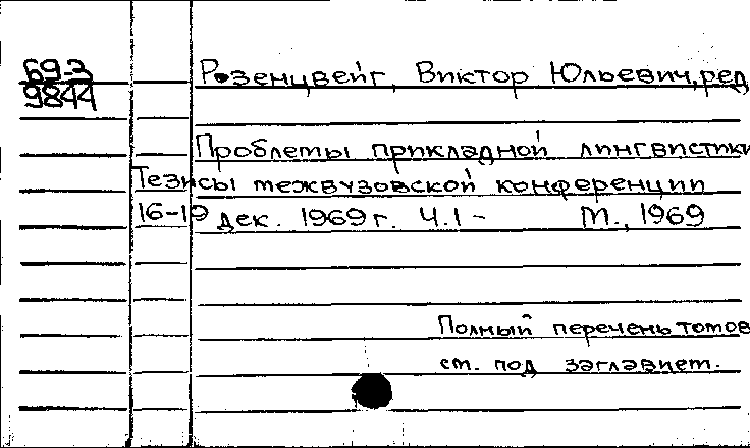 69-3
9844
Розенцвейг, Виктор Юльевич, ред
Проблемы прикладной лингвистики
Тезисы межвузовской конференции
16-19 дек. 1969 г. Ч.1 - М., 1969
Полный перечень томов
см. под заглавием.